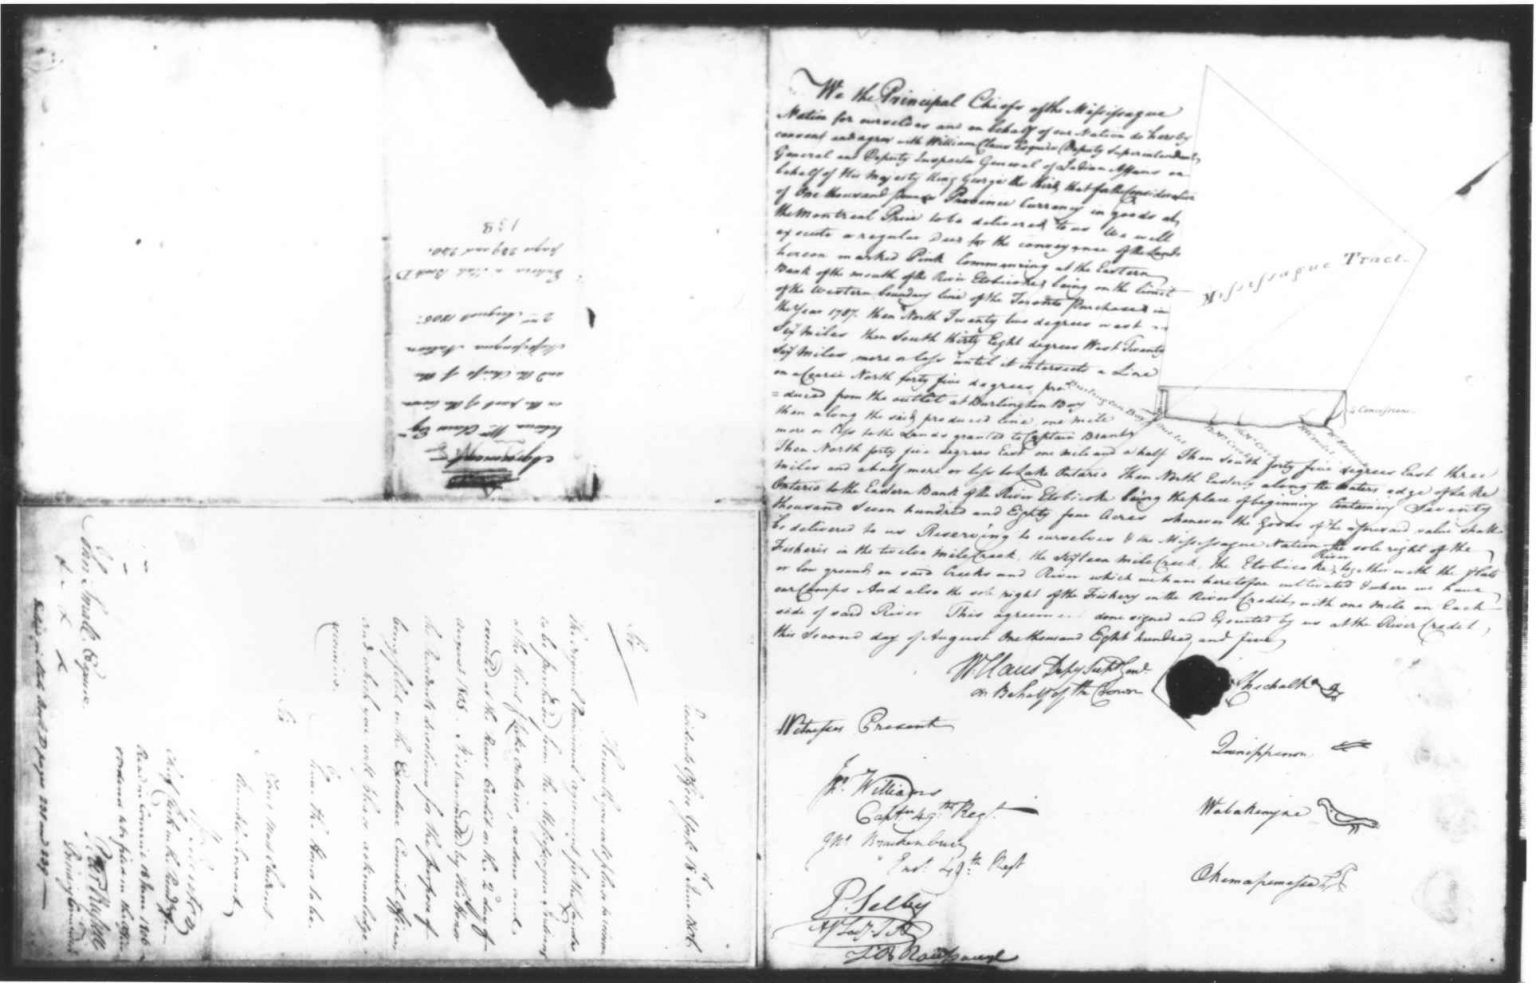 We the Principal Chiefs of the Missisague
Nation for ourselves and on behalf of our Nation do hereby
consent and agree with William Claus Esquire Deputy Superintendent
General and Deputy Inspector General of Indian Affairs on
behalf of His Majesty King George the third, that for the Consideration
of One thousand pounds Province Currency in goods at
the Montreal Price to be delivered to us We will
execute a regular Deed for the conveyance of the Lands
hereon marked Pink Commencing at the Eastern
Bank of the mouth of the River Etobicoke being on the limit
of the Western boundary line of the Toronto Purchase in
the Year 1787. then North Twenty two degrees west
Six Miles then South thirty Eight degrees West Twenty
Six Miles more or less until it intersects a Line
on a Course North forty five degrees pro
=duced from the outlet at Burlington Bay
then along the said produced line one mile
more or less to the Lands granted to Captain Brant
Then North forty five degrees East one mile and a half Then South forty five degrees East three
miles and a half more or less to Lake Ontario Then North Easterly along the waters edge of Lake
Ontario to the Eastern Bank of the River Etobicoke being the place of beginning Containing Seventy
thousand seven hundred and Eighty four Acres whenever the Goods of the aforesaid value shall
be delivered to us Reserving to ourselves & the Missisague Nation the sole right of the
Fisheries in the twelve mile Creek, the Sixteen mile Creek, the Etobicoke River together with the flats
or low grounds on said Creeks and River which we have heretofore cultivated & where we have
our Camps And also the sole right of the Fishery in the River Credit with one Mile on Each
side of said River This agreement done signed and Executed by us at the River Credit,
this Second day of August One thousand Eight hundred, and five
Missisague Tract
Burlington Bay
WClaus Depy Supt Genl
on Behalf of the Crown
Chechalk
Witnesses Present
Quinippenon
Jno. Williams
Captn 49th Regt.
Wabakenyne
Brackenbury
Ens. 49th Regt
Okemapenesse
P. Selby
J Bt Rousseaux
Agreement
between Wm Claus Esqr
on the part of the Crown
and the Chiefs of the
Missisague Nation
2nd August 1805
138
Presidents Office York 18 June 1806.
Sir
the original Provisional agreement for the Lands
to be purchased from the Missisague Indians
executed at the River Credit on the 2 day of
august 1805. It is transmitted by His Honor
the Presidents directions for the purpose of
being filed in the Executive Council Office
and which you will please acknowledge
I have the honor to be
Sir
Your Most Obedient
Humble Servant
John Small Esquire